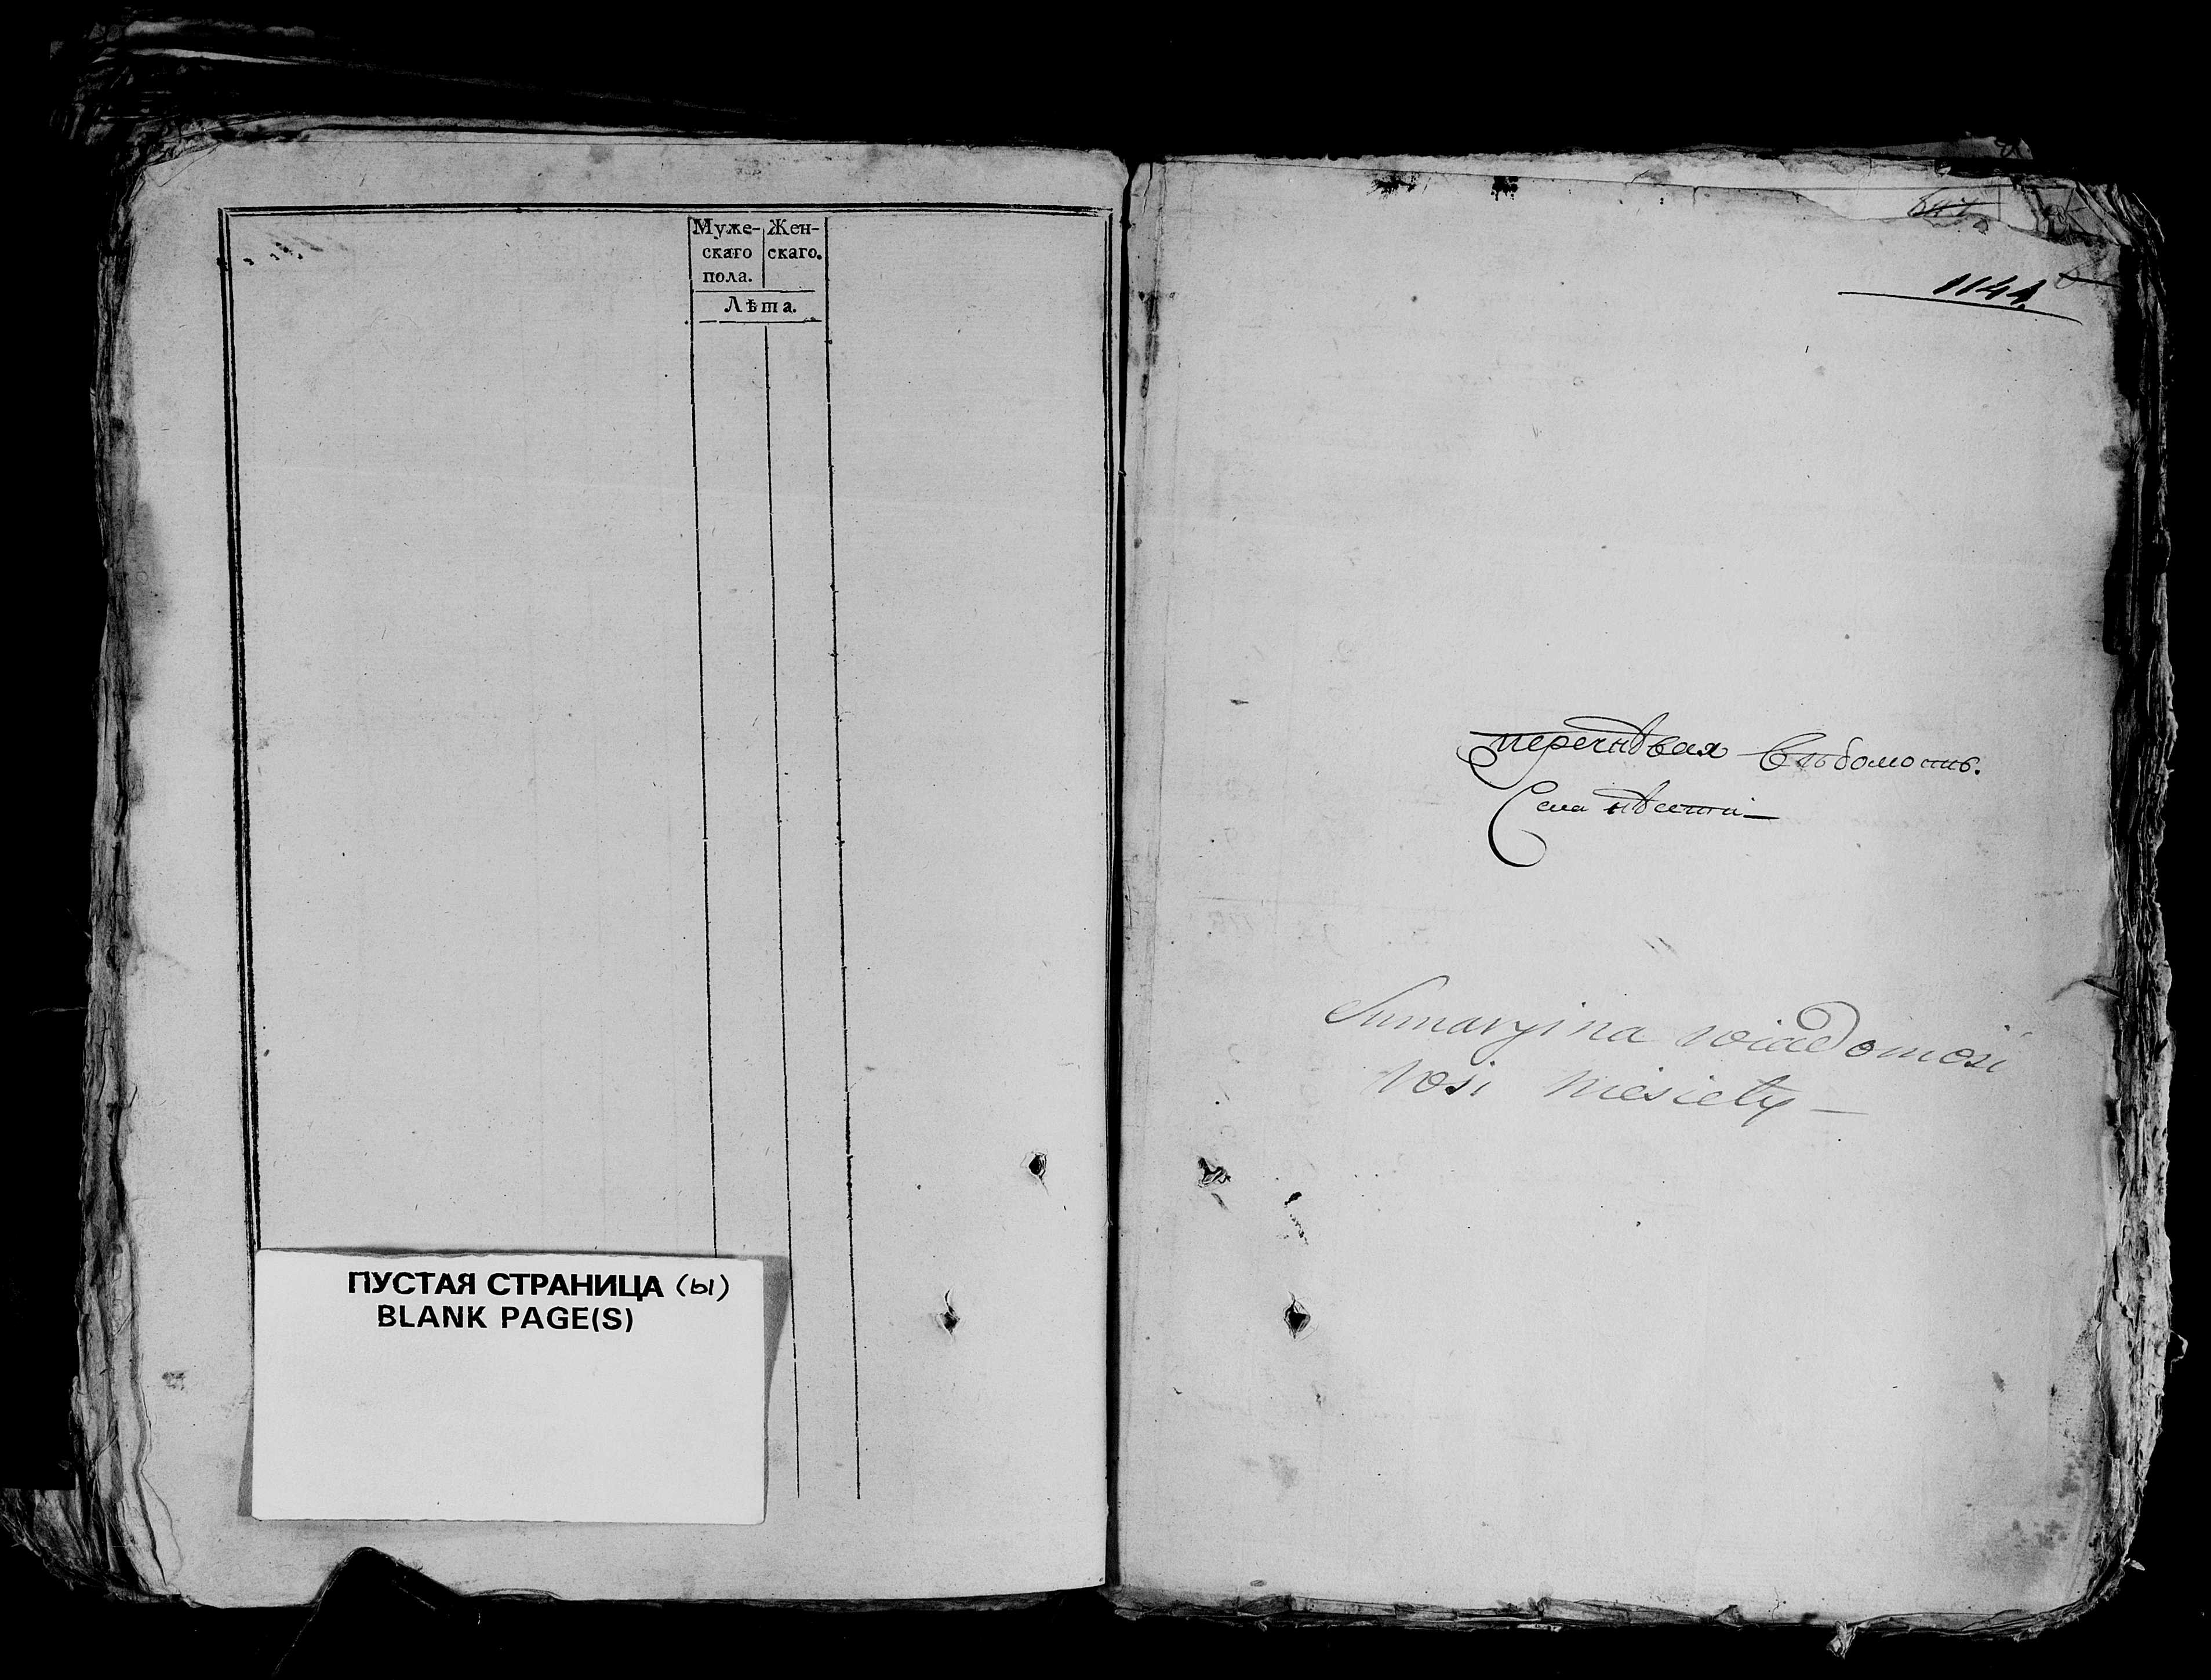 Муже-
скаго
пола.
Жен-
скаго.
Лѣта.
ПУСТАЯ СТРАНИЦА (ы)
BLANK PAGE(S)
1141.
перечневая вѣдомость.
Села
Sumaryina wiadomosi
wsi Niesiety